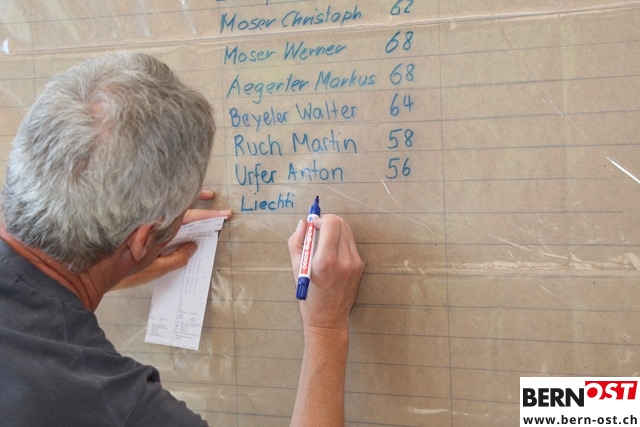 Moser Christoph 62
Moser Werner 68
Aegerter Markus 68
Beyeler Walter 64
Ruch Martin 58
Urfer Anton 56
Liechti
BERNOST
www.bern-ost.ch